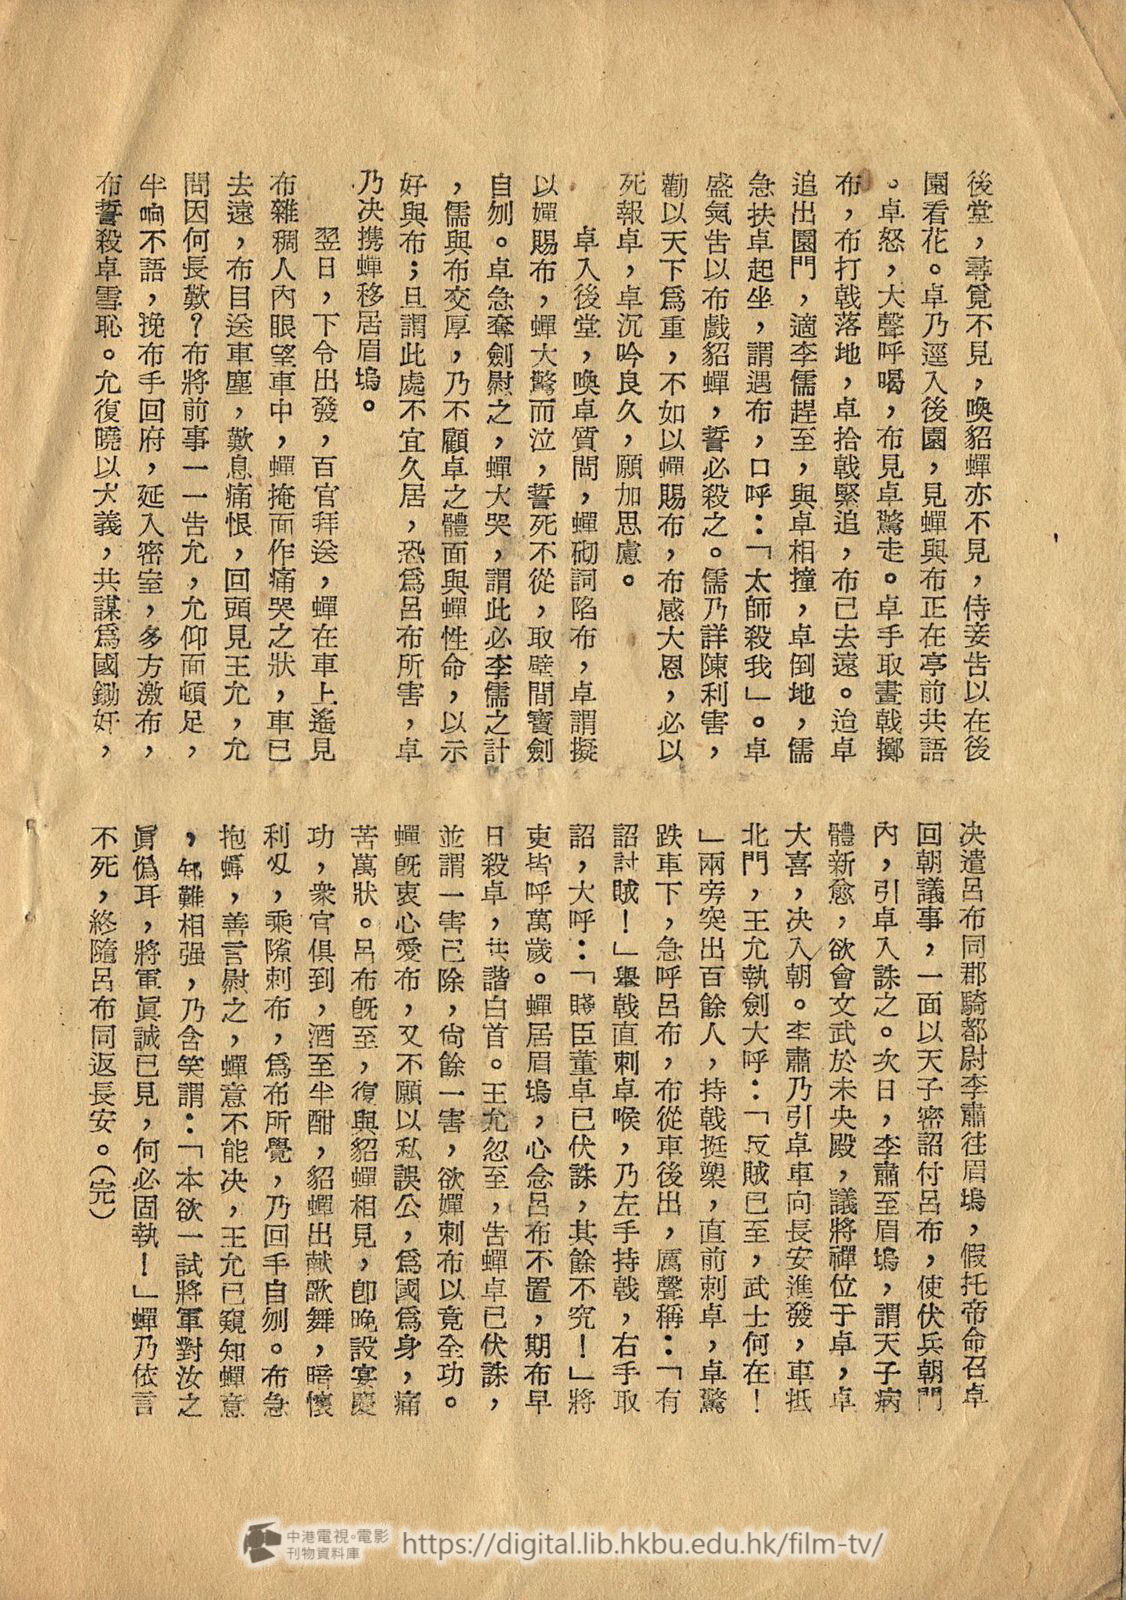 後堂，尋覓不見，喚貂蟬亦不見，侍妾告以在後
園看花。卓乃逕入後園，見蟬與布正在亭前共語
。卓怒，大聲呼喝，布見卓驚走。卓手取畫戟擲
布，布打戟落地，卓拾戟緊追，布已去遠。迨卓
追出園門，適李儒趕至，與卓相撞，卓倒地，儒
急扶卓起坐，謂遇布，口呼：「太師殺我」。卓
盛氣告以布戲貂蟬，誓必殺之。儒乃詳陳利害，
勸以天下爲重，不如以蟬賜布，布感大恩，必以
死報卓，卓沉吟良久，願加思慮。
卓入後堂，喚卓質問，蟬砌詞陷布，卓謂擬
以嬋賜布，蟬大驚而泣，誓死不從，取壁間寶劍
自刎。卓急奪劍慰之，蟬大哭，謂此必李儒之計
，儒與布交厚，乃不顧卓之體面與蟬性命，以示
好與布；且謂此處不宜久居，恐爲呂布所害，卓
乃决携蟬移居眉塢。
翌日，下令出發，百官拜送，蟬在車上遙見
布雜稠人內眼望車中，蟬掩面作痛哭之狀，車已
去遠，布目送車塵，歎息痛恨，回頭見王允，允
問因何長歎？布將前事一一告允，允仰面頓足，
半晌不語，挽布手回府，延入密室，多方激布，
布誓殺卓雪恥。允復曉以大義，共謀爲國鋤奸，
决遣呂布同郡騎都尉李肅往眉塢，假托帝命召卓
回朝議事，一面以天子密詔付呂布，使伏兵朝門
內，引卓入誅之。次日，李肅至眉塢，謂天子病
體新愈，欲會文武於未央殿，議將禪位于卓，卓
大喜，决入朝。李肅乃引卓車向長安進發，車抵
北門，王允執劍大呼：「反賊已至，武士何在！
」兩旁突出百餘人，持戟挺槊，直前刺卓，卓驚
跌車下，急呼呂布，布從車後出，厲聲稱：「有
詔討賊！」舉戟直刺卓喉，乃左手持戟，右手取
詔，大呼：「賤臣董卓已伏誅，其餘不究！」將
吏皆呼萬歲。蟬居眉塢，心念呂布不置，期布早
日殺卓，共諧白首。王允忽至，告蟬卓已伏誅，
並謂一害已除，尙餘一害，欲嬋刺布以竟全功。
蟬旣衷心愛布，又不願以私誤公，爲國爲身，痛
苦萬狀。呂布旣至，復與貂蟬相見，卽晚設宴慶
功，衆官俱到，酒至半酣，貂蟬出献歌舞，暗懷
利刄，乘隙刺布，爲布所覺，乃回手自刎。布急
抱蟬，善言慰之，蟬意不能决，王允已窺知蟬意
，知難相强，乃含笑謂：「本欲一試將軍對汝之
眞僞耳，將軍眞誠已見，何必固執！」蟬乃依言
不死，終隨呂布同返長安。（完）
中港電視•電影
刊物資料庫
https://digital.lib.hkbu.edu.hk/film-tv/